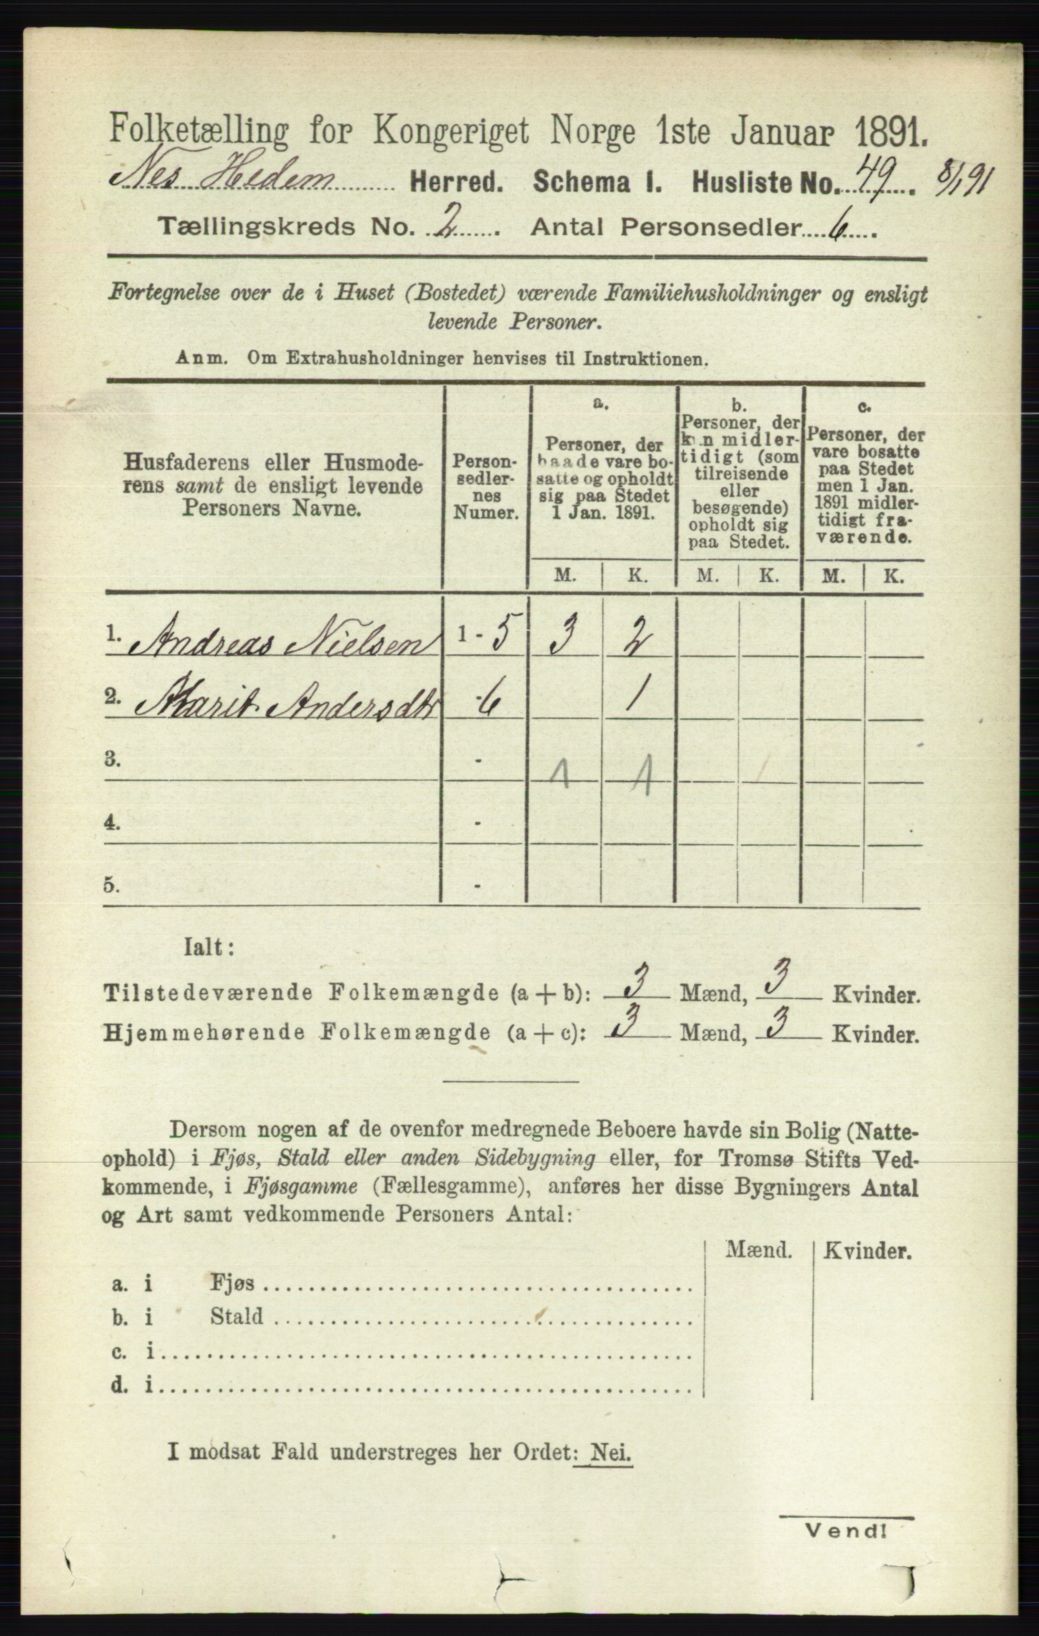 Folketælling for Kongeriget Norge 1ste Januar 1891.
Nes Hedem Herred. Schema I. Husliste No. 49. 8/1 91
Tællingskreds No. 2. Antal Personsedler 6.
Fortegnelse over de i Huset (Bostedet) værende Familiehusholdninger og ensligt
levende Personer.
Anm. Om Extrahusholdninger henvises til Instruktionen.
Husfaderens eller Husmode-
rens samt de ensligt levende
Personers Navne.
Person-
sedler-
nes
Numer.
a.
Personer, der
baade vare bo-
satte og opholdt
sig paa Stedet
1 Jan. 1891.
b.
Personer, der
kun midler-
tidigt (som
tilreisende
eller
besøgende)
opholdt sig
paa Stedet.
c.
Personer, der
vare bosatte
paa Stedet
men 1 Jan.
1891 midler-
tidigt fra-
værende.
M. K. M. K. M. K.
1. Andreas Nielsen 1-5 3 2
2. Marit Andersdtr -6 1
3. - 1 1
4. -
5. -
Ialt:
Tilstedeværende Folkemængde (a + b): 3 Mænd, 3 Kvinder.
Hjemmehørende Folkemængde (a + c): 3 Mænd, 3 Kvinder.
Dersom nogen af de ovenfor medregnede Beboere havde sin Bolig (Natte-
ophold) i Fjøs, Stald eller anden Sidebygning eller, for Tromsø Stifts Ved-
kommende, i Fjøsgamme (Fællesgamme), anføres her disse Bygningers Antal
og Art samt vedkommende Personers Antal:
Mænd. Kvinder.
a. i Fjøs
b. i Stald
c. i
d. i
I modsat Fald understreges her Ordet: Nei.
Vend!